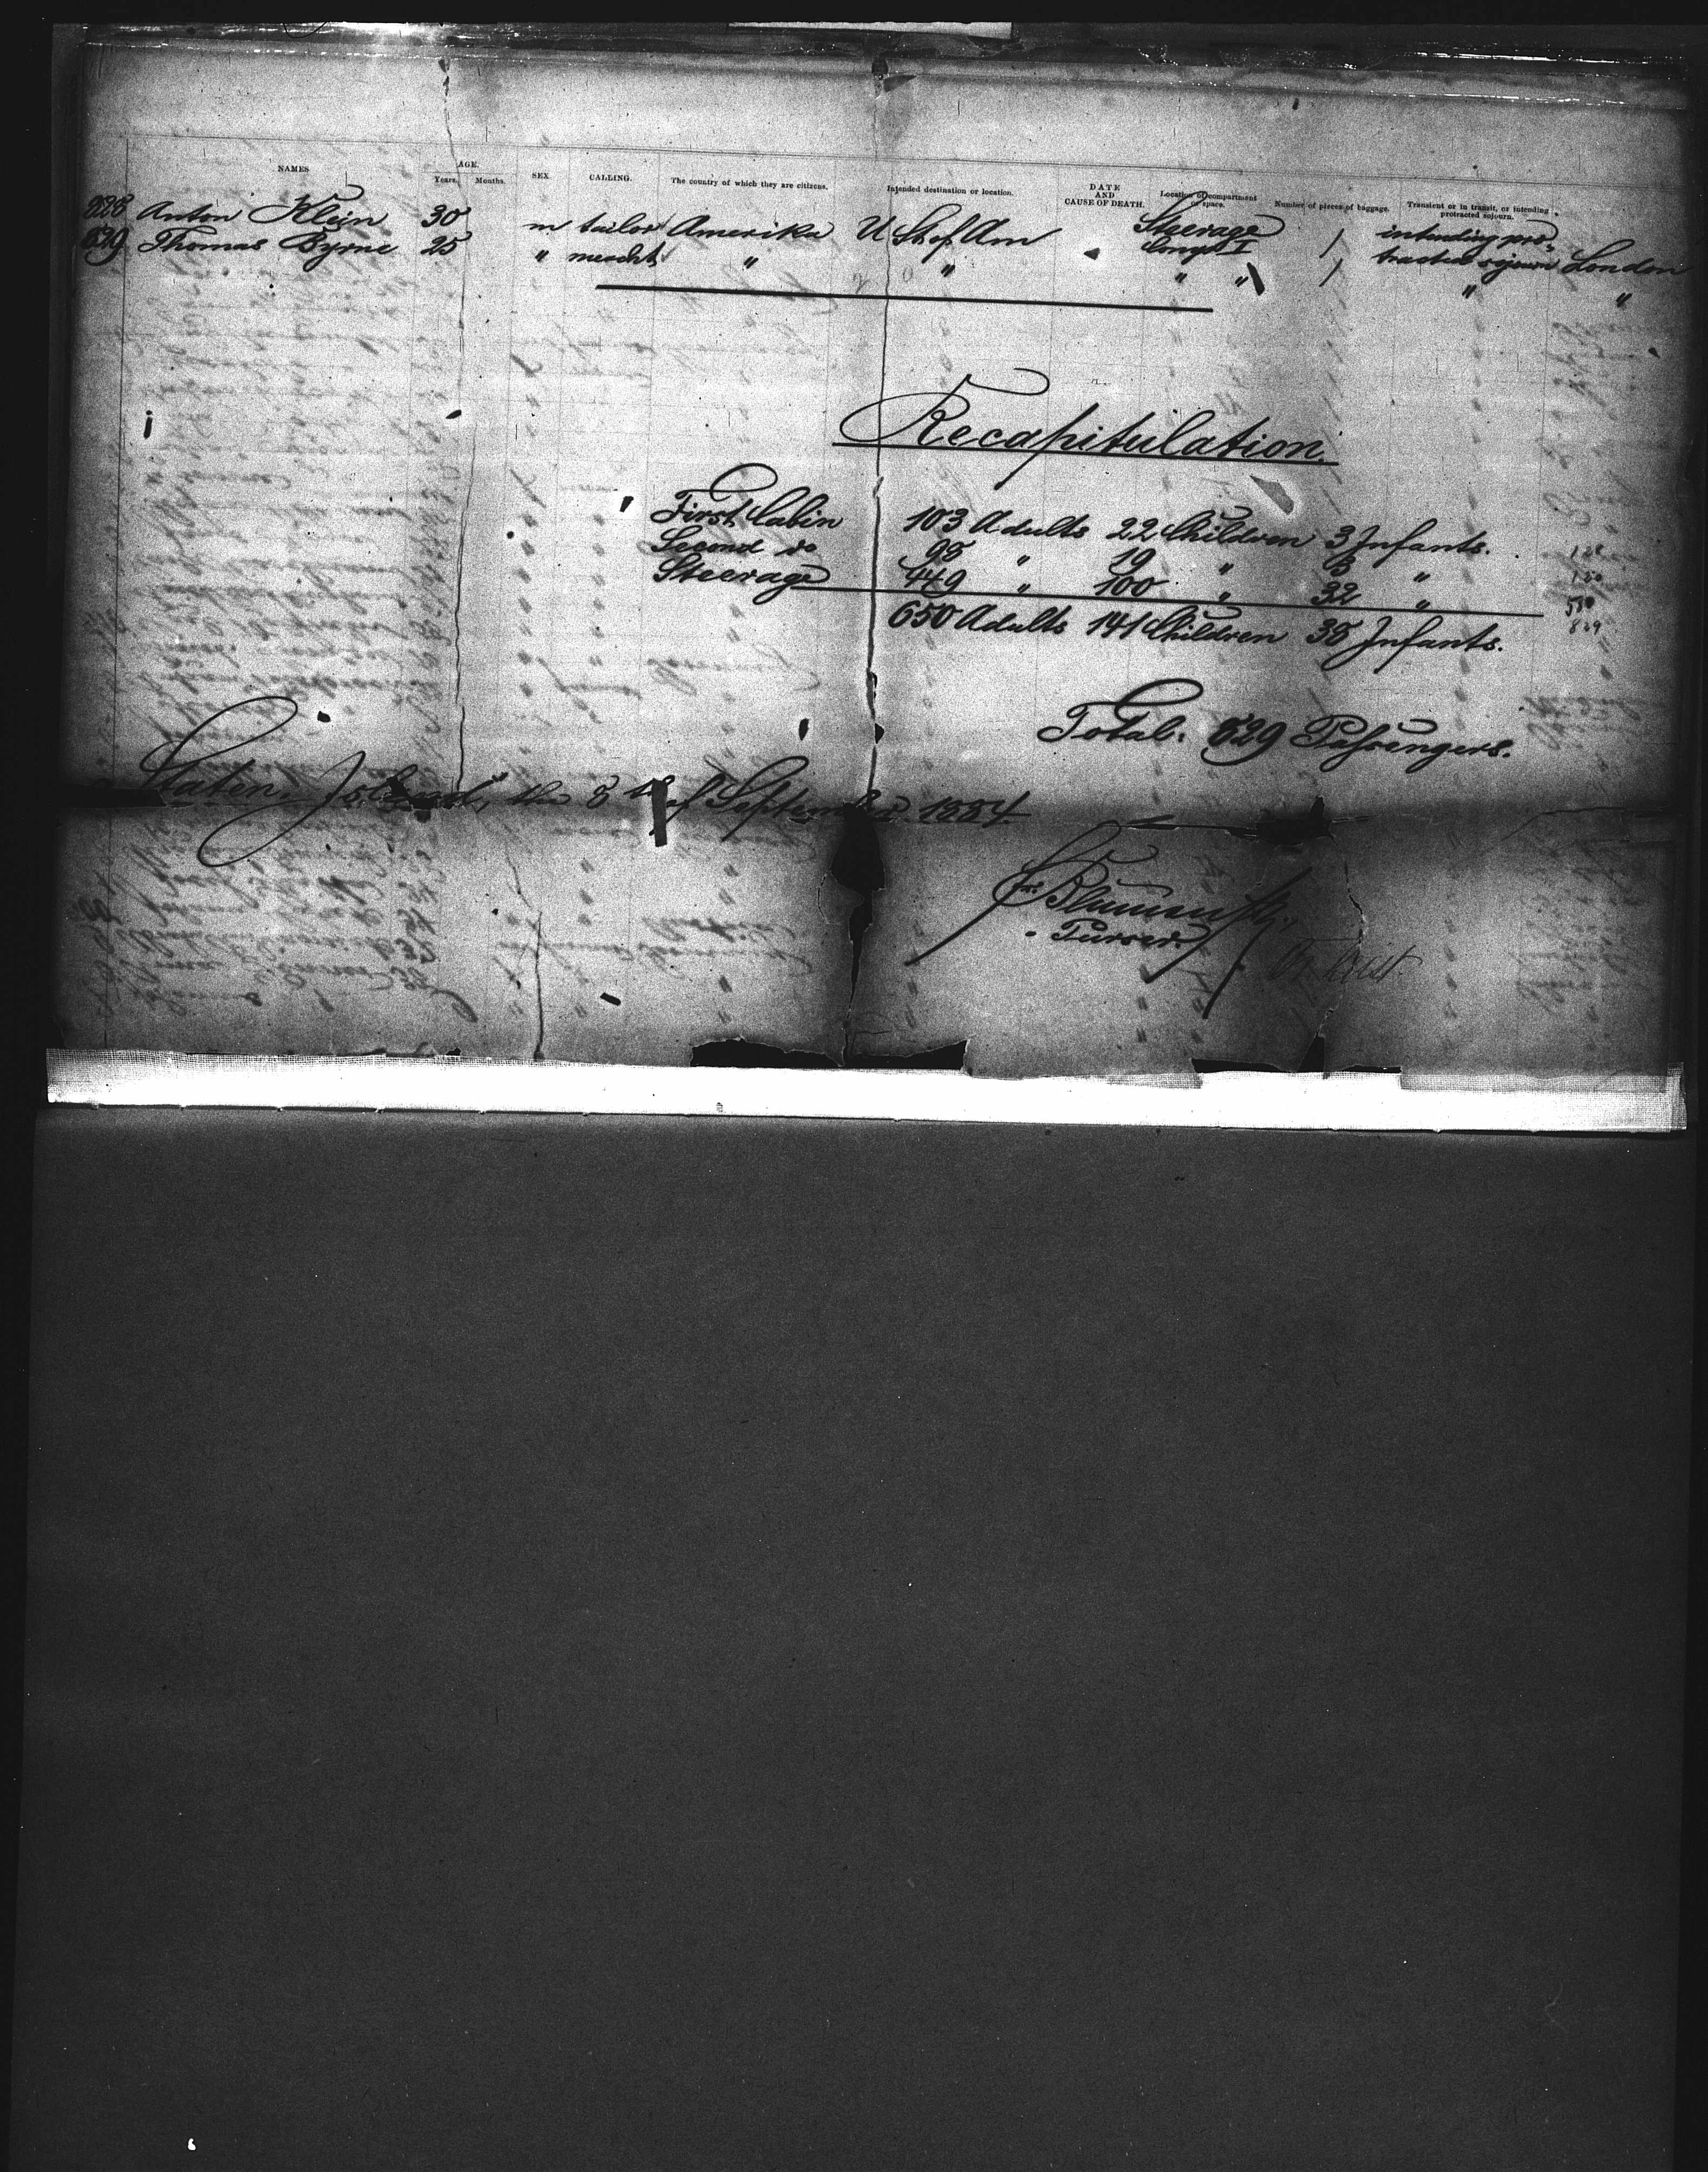 NAMES AGE. SEX CALLING. The country of which they are citizens. Intended destination or location. DATE AND CAUSE OF DEATH. Location of compartment or space. Number of pieces of baggage. Transient or in transit, or intending protracted sojourn.
Years. Months.
828 Anton Klein 30 m tailor Amerika U St of Am Steerage Compt I 1 intending protracted sojourn London
829 Thomas Byrne 25 " mercht " " " " 1 " "
Recapitulation.
First Cabin 103 Adults 22 Children 3 Infants. 128
Second do 98 " 19 " 3 "
Steerage 449 " 100 " 32 "
650 Adults 141 Children 38 Infants. 829
Total. 829 Passengers.
Staten Island, the 8th of September 1884
Purser.